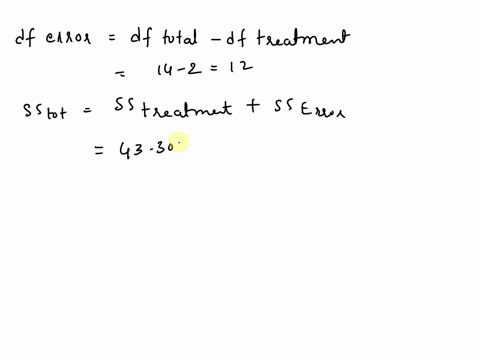 df error = df total - df treatment
= 14-2 = 12
SS tot = SS treatment + SS Error
= 43.30